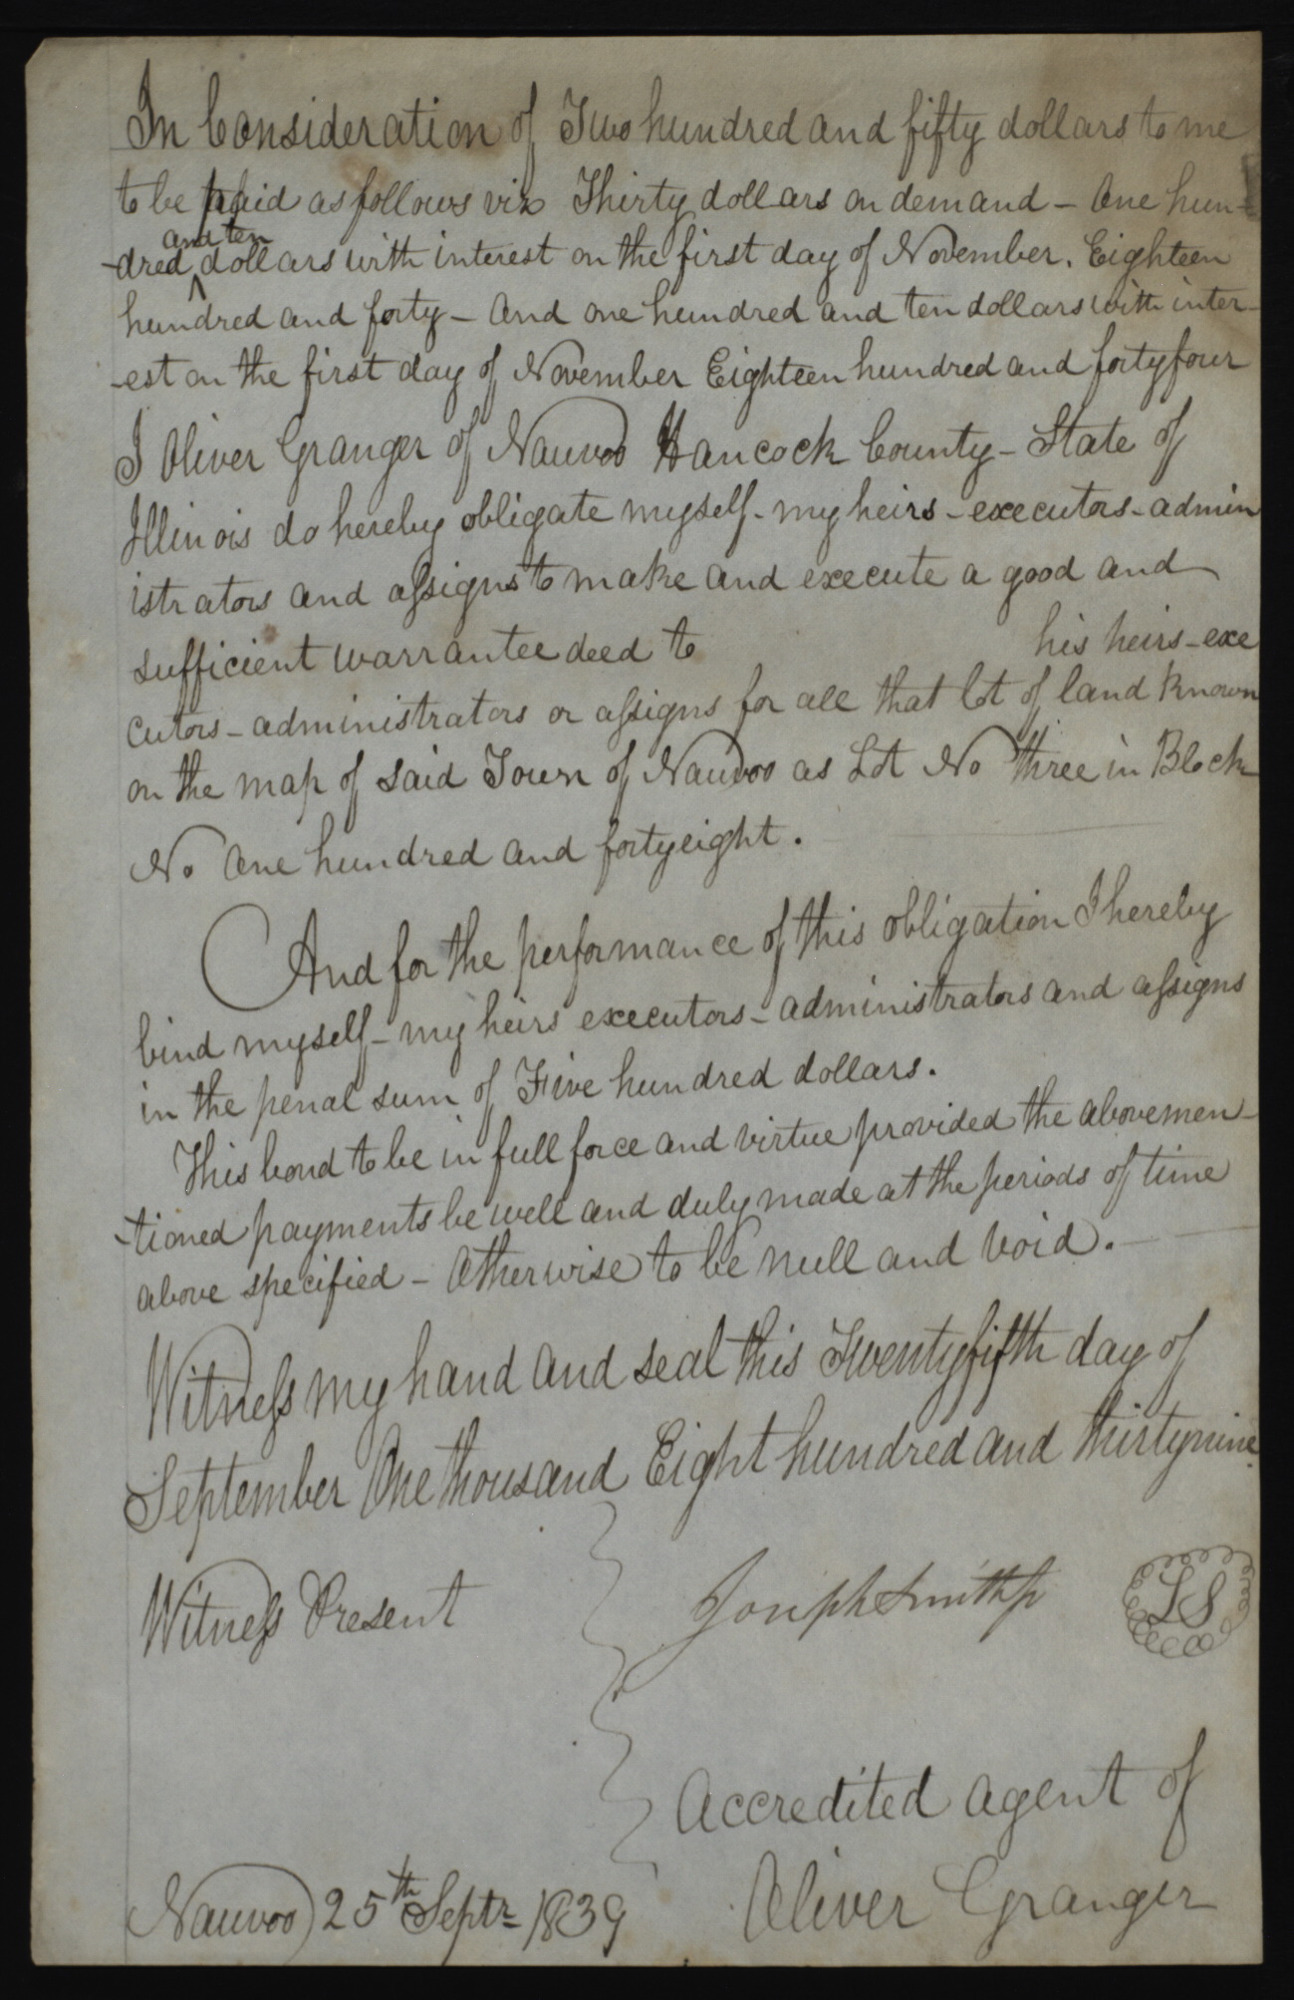 In Consideration of Two hundred and fifty dollars to me
to be paid as follows viz Thirty dollars on demand - One hun-
-dred and ten dollars with interest on the first day of November. Eighteen
hundred and forty - And one hundred and ten dollars with inter-
-est on the first day of November Eighteen hundred and fortyfour
I Oliver Granger of Nauvoo Hancock County - State of
Illinois do hereby obligate myself - my heirs - executors - admin
istrators and assigns to make and execute a good and
sufficient warrantee deed to his heirs - exe
cutors - administrators or assigns for all that lot of land known
on the map of said Town of Nauvoo as Lot No three in Block
No One hundred and fortyeight.
And for the performance of this obligation I hereby
bind myself - my heirs executors - administrators and assigns
in the penal sum of Five hundred dollars.
This bond to be in full force and virtue provided the abovemen-
-tioned payments be well and duly made at the periods of time
above specified - Otherwise to be null and void.
Witness my hand and seal this Twentyfifth day of
September One thousand Eight hundred and thirtynine.
Witness Present
Joseph Smith Jr
LS
Accredited Agent of
Oliver Granger
Nauvoo 25th Septr 1839